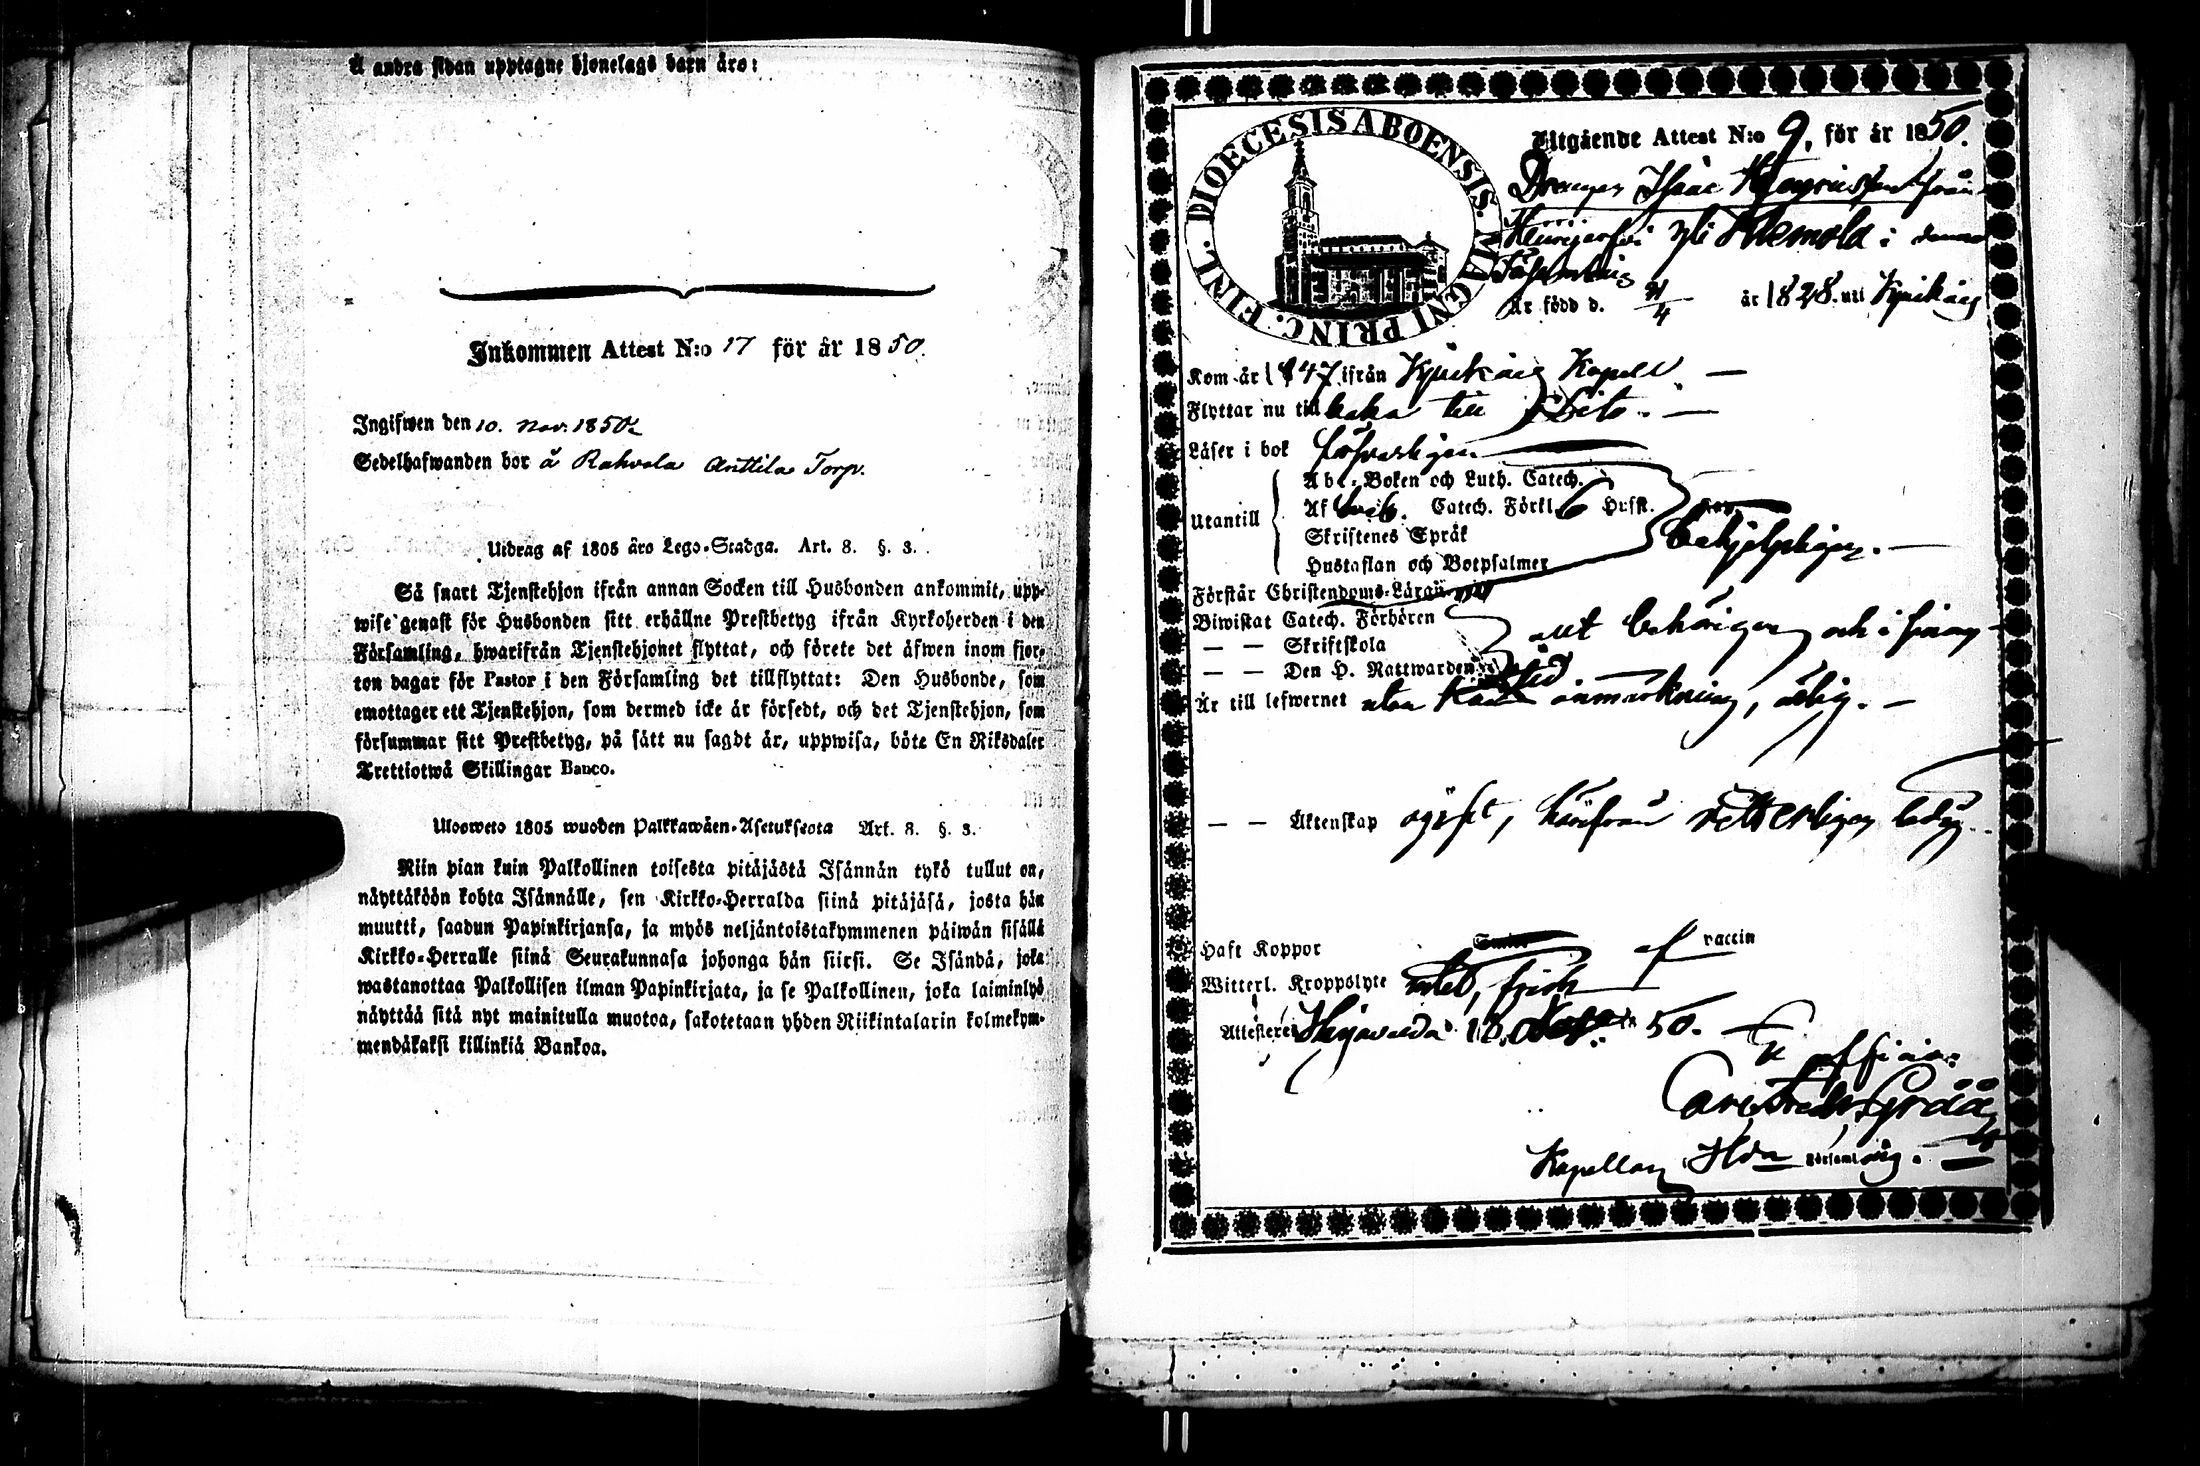 Å andra sidan upptagne hjonelags barn äro:
Inkommen Attest N:o 17 för år 1850.
Ingifwen den 10. Nov. 1850.
Sedelhafwanden bor å Rahvola Anttila Torp.
Utdrag af 1805 års Lego-Stadga. Art. 8. §. 3.
Så snart Tjenstehjon ifrån annan Socken till Husbonden ankommit, upp-
wise genast för Husbonden sitt erhållne Prestbetyg ifrån Kyrkoherden i den
Församling, hwarifrån Tjenstehjonet flyttat, och förete det äfwen inom fjor-
ton dagar för Pastor i den Församling det tillflyttat: Den Husbonde, som
emottager ett Tjenstehjon, som dermed icke är försedt, och det Tjenstehjon, som
försummar sitt Prestbetyg, på sätt nu sagdt är, uppwisa, böte En Riksdaler
Trettiotwå Skillingar Banco.
Ulosweto 1805 wuoden Palkkawäen-Asetuksesta Art. 8. §. 3.
Niin pian kuin Palkollinen toisesta pitäjästä Isännän tykö tullut on,
näyttäköön kohta Isännälle, sen Kirkko-Herralda siinä pitäjäsä, josta hän
muutti, saadun Papinkirjansa, ja myös neljäntoistakymmenen päiwän sisällä
Kirkko-Herralle siinä Seurakunnasa johonga hän siirsi. Se Isändä, joka
wastanottaa Palkollisen ilman Papinkirjata, ja se Palkollinen, joka laiminlyö
näyttää sitä nyt mainitulla muotoa, sakotetaan yhden Riikintalarin kolmekym-
mendäkaksi killinkiä Bankoa.
DIOECESIS ABOENSIS. MAGNI PRINC. FINL.
Utgående Attest N:o 9, för år 1850.
Drengen Isaac från
yli i denna
Församling
Är född d. 21/4 år 1828. uti Kjuikais
Kom år 1847 ifrån Kjuikais Kapell.
Flyttar nu till baka till Dito.
Läser i bok försvarligen
Utantill
Abc-Boken och Luth. Catech.
Af Catech. Förkl. 6 Hufst.
Skriftenes Språk
Hustaflan och Botpsalmer
behjelpligen.
Förstår Christendoms-Läran
Biwistat Catech. Förhören
— — Skriftskola
— — Den H. Nattwarden
allt behörigen och i
Är till lefwernet utan känd anmärkning, ärlig.
— — Äktenskap ogift, härifrån ledig.
Haft Koppor af vaccin
Witterl. Kroppslyte intet, frisk
Attesterer d. 10. 50.
Ex officio:
Carl Fredr.
Kapellan i Församling.